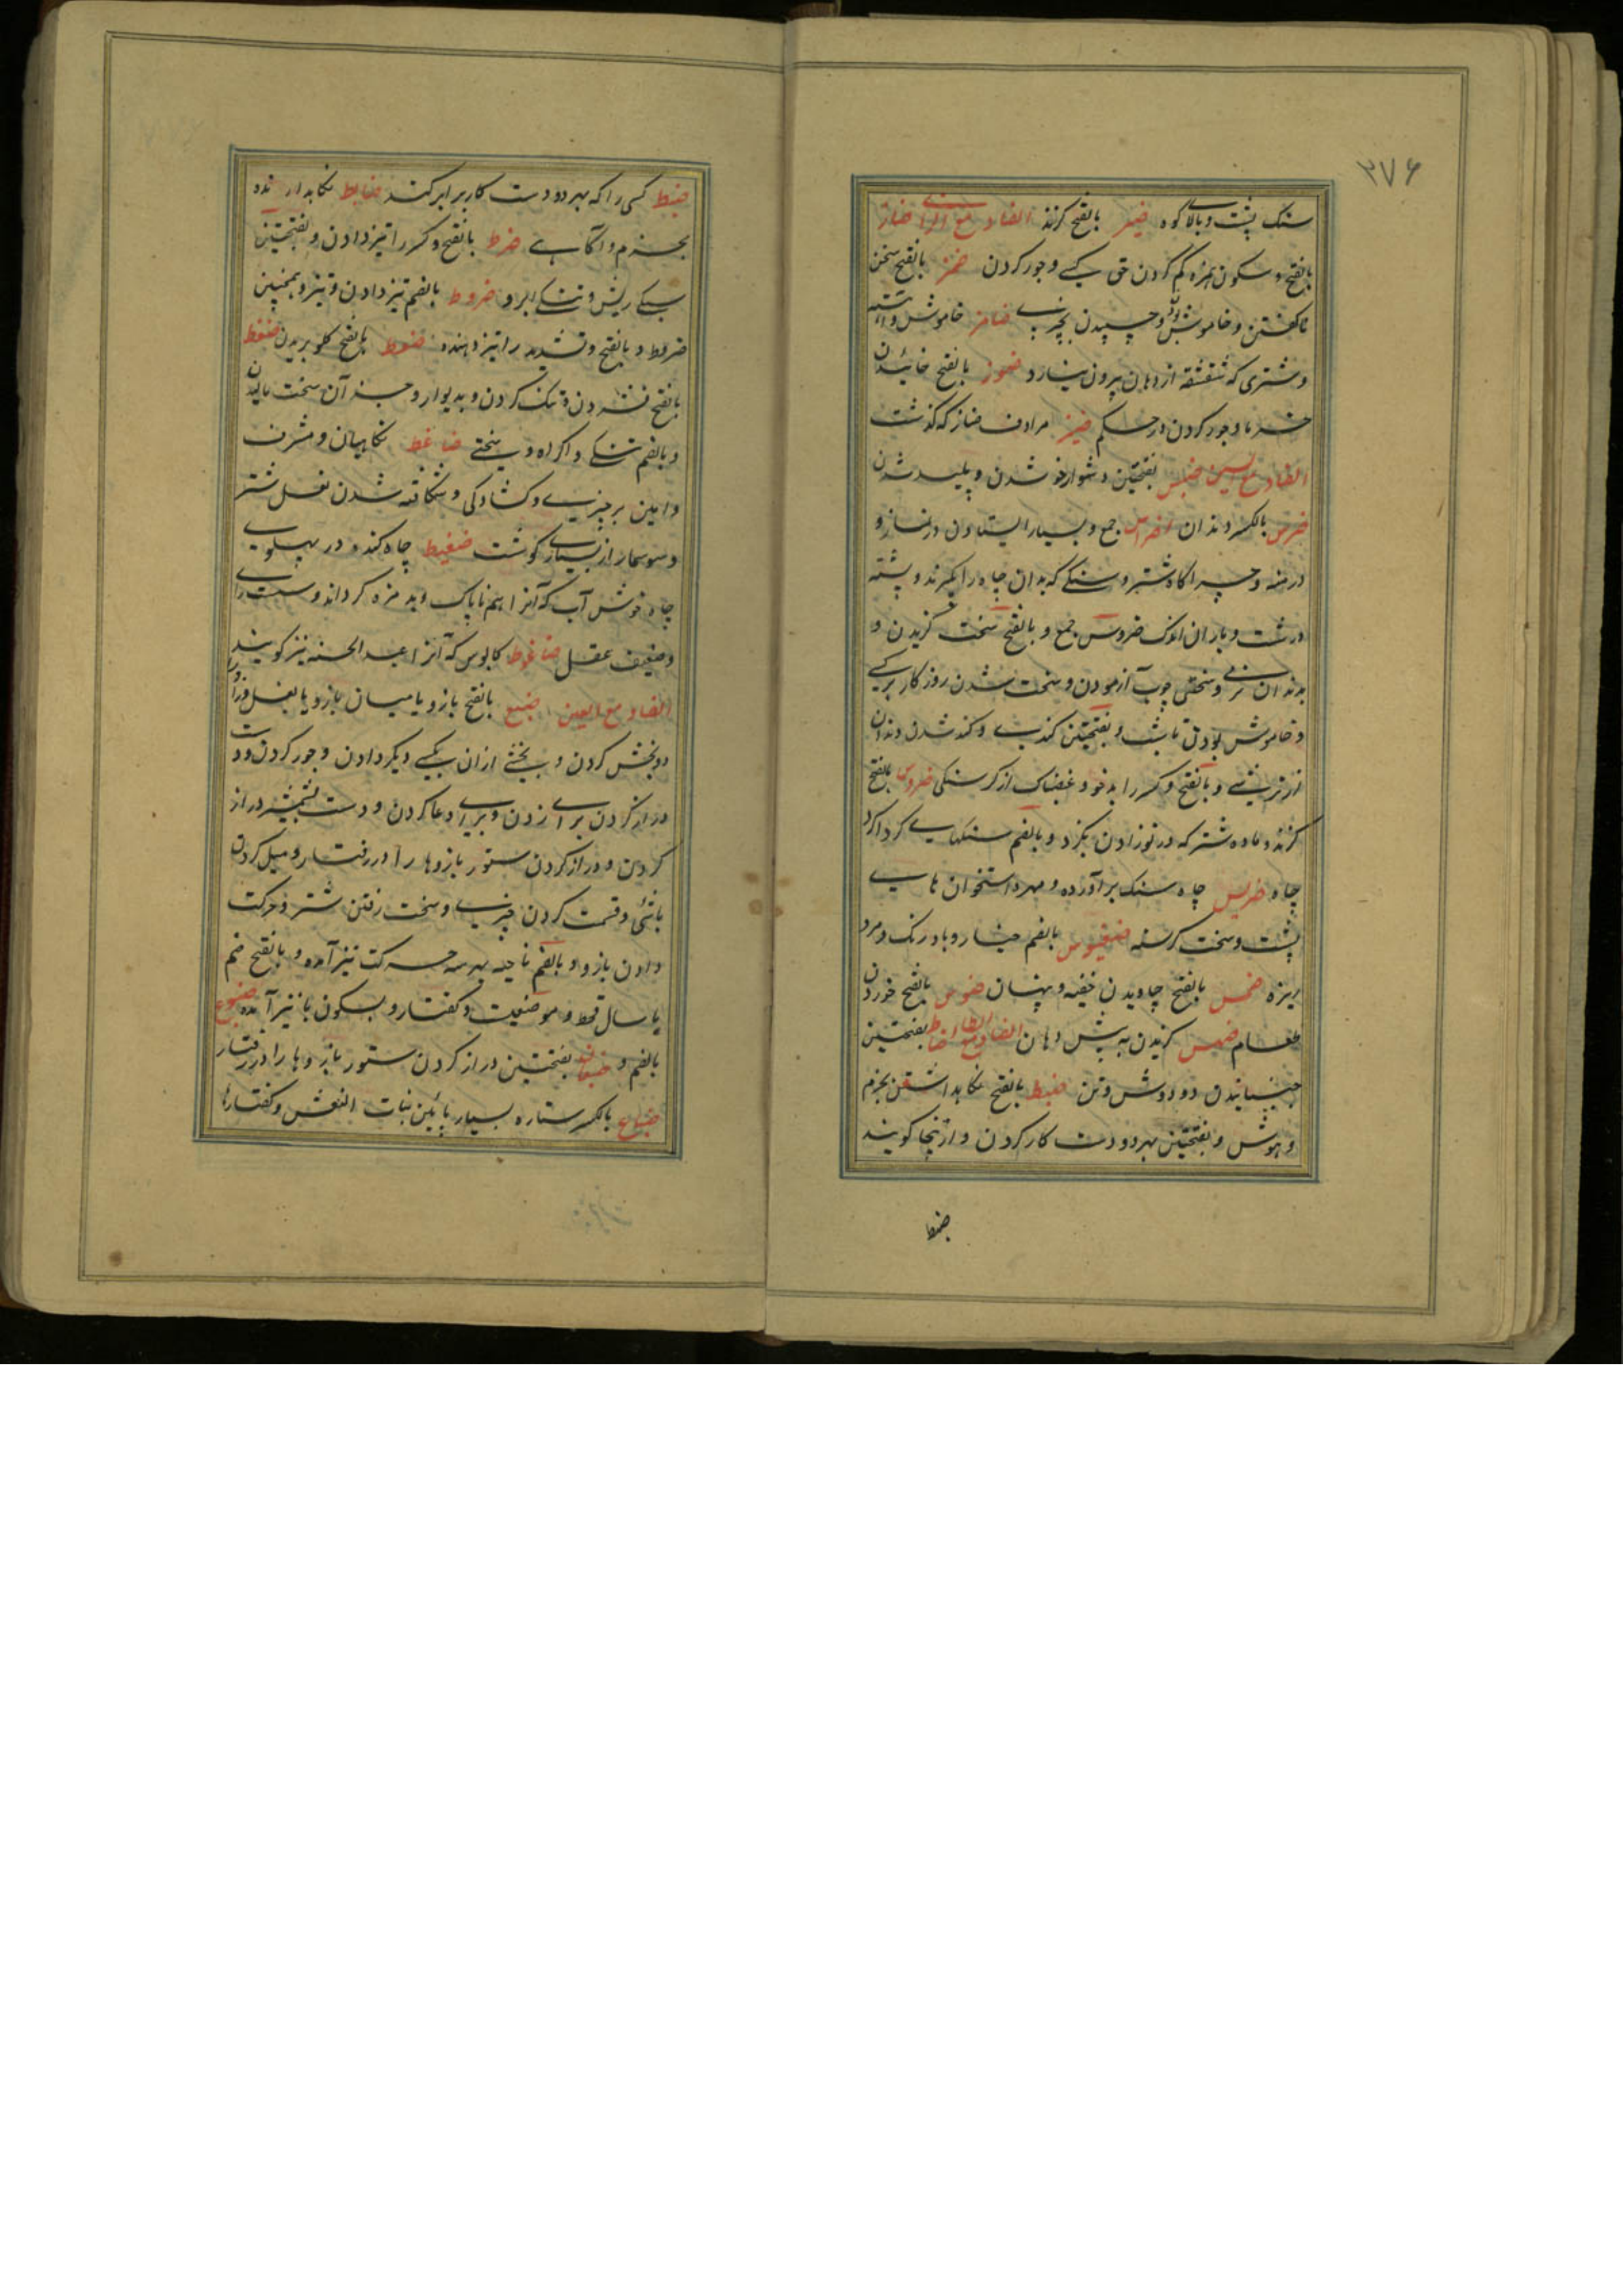 ۲۷۶
سنک پشت و بالای کوه ضیر بالفتح کزند الضاد مع الزای ضاز
بالفتح و سکون همزه کم کردن حق کسی و جور کردن ضمز بالفتح سخن
ناکفتن و خاموش بودن و چسپیدن بچیزی ضامز خاموش و
و شتری که شقشقه از دهان بیرون نیارد ضموز بالفتح خائیدن
خرما و جور کردن در حکم ضیز مرادف ضاز که کذشت
الضاد مع السین ضبس بفتحتین دشوار خو شدن و پلید شدن
ضرس بالکسر دندان اضراس جمع و بسیار ایستادن در نماز و
درمنه و چراکاه شتر و سنکی که بدان چاه را بکیرند و پشته
درشت و باران اندک ضروس جمع و بالفتح سخت کزیدن و
بدندان نرمی و سختی چوب آزمودن و سخت شدن روزکار بر کسی
و خاموش بودن تا شب و بفتحتین کندی و کند شدن دندان
از ترشی و بالفتح و کسر را بدخو و غضبناک از کرسنکی ضروس بالفتح
کزنده و ماده شتر که در نوزادن بکزد و بالضم سنکهای کرداکرد
چاه ضریس چاه سنک برآورده و مهره استخوان های
پشت و سخت کرسنه ضغبوس بالضم خیار و بادرنک و مرد
ریزه ضمس بالفتح چاویدن خفیه و پنهان ضوس بالفتح خوردن
طعام ضهس کزیدن به پیش دهان الضاد مع الطا بفتحتین
جنبانیدن دو دوش و تن ضبط بالفتح نکاهداشتن بحزم
و هوش و بفتحتین بهر دو دست کار کردن و ازینجا کویند
ضبط
ضبط کسی را که بهر دو دست کار برابر کند ضابط نکاهدارنده
بحزم و آکاهی ضرط بالفتح و کسر را تیز دادن و بفتحتین
سبکی ریش و تنکی ابرو ضروط بالضم تیز دادن و تیز و بمچنین
ضریط و بالفتح و تشدید را تیز دهنده ضعط بالفتح کلو بریدن ضغط
بالفتح فشردن و تنک کردن و بدیوار و جز آن سخت مالیدن
و بالضم تنکی و اکراه و سختی ضاغط نکاهبان و مشرف
و امین بر چیزی و کشادکی و شکافته شدن بغل شتر
و سوسمار از بسیاری کوشت ضغیط چاه کنده در پهلوی
چاه خوش آب که آنرا هم ناپاک و بد مزه کرداند و سست رای
و ضعیف عقل ضاغوط کابوس که آنرا عبد الجنه نیز کویند
الضاد مع العین ضبع بالفتح بازو یا میان بازو یا بغل و زدن
دو بخش کردن و بخشی ازان بکسی دیکر دادن و جور کردن و دست
دراز کردن برای زدن و برای دعا کردن و دست بشمشیر دراز
کردن و دراز کردن ستور بازوها را در رفتار و میل کردن
باشتی و قسمت کردن چیزی و سخت رفتن شتر و حرکت
دادن بازو و بالضم ناحیه بهر سه حرکت نیز آمده و بالفتح ضم
با سال قحط و موضعیست و کفتار و بسکون با نیز آمده ضبوع
بالضم و ضبعان بفتحتین دراز کردن ستور بازوها را در رفتار
ضباع بالکسر ستاره بسیار پائین بنات النعش و کفتارها